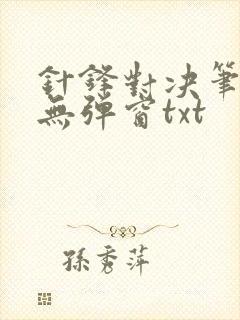 針鋒對決筆
無彈窗txt
孫秀萍